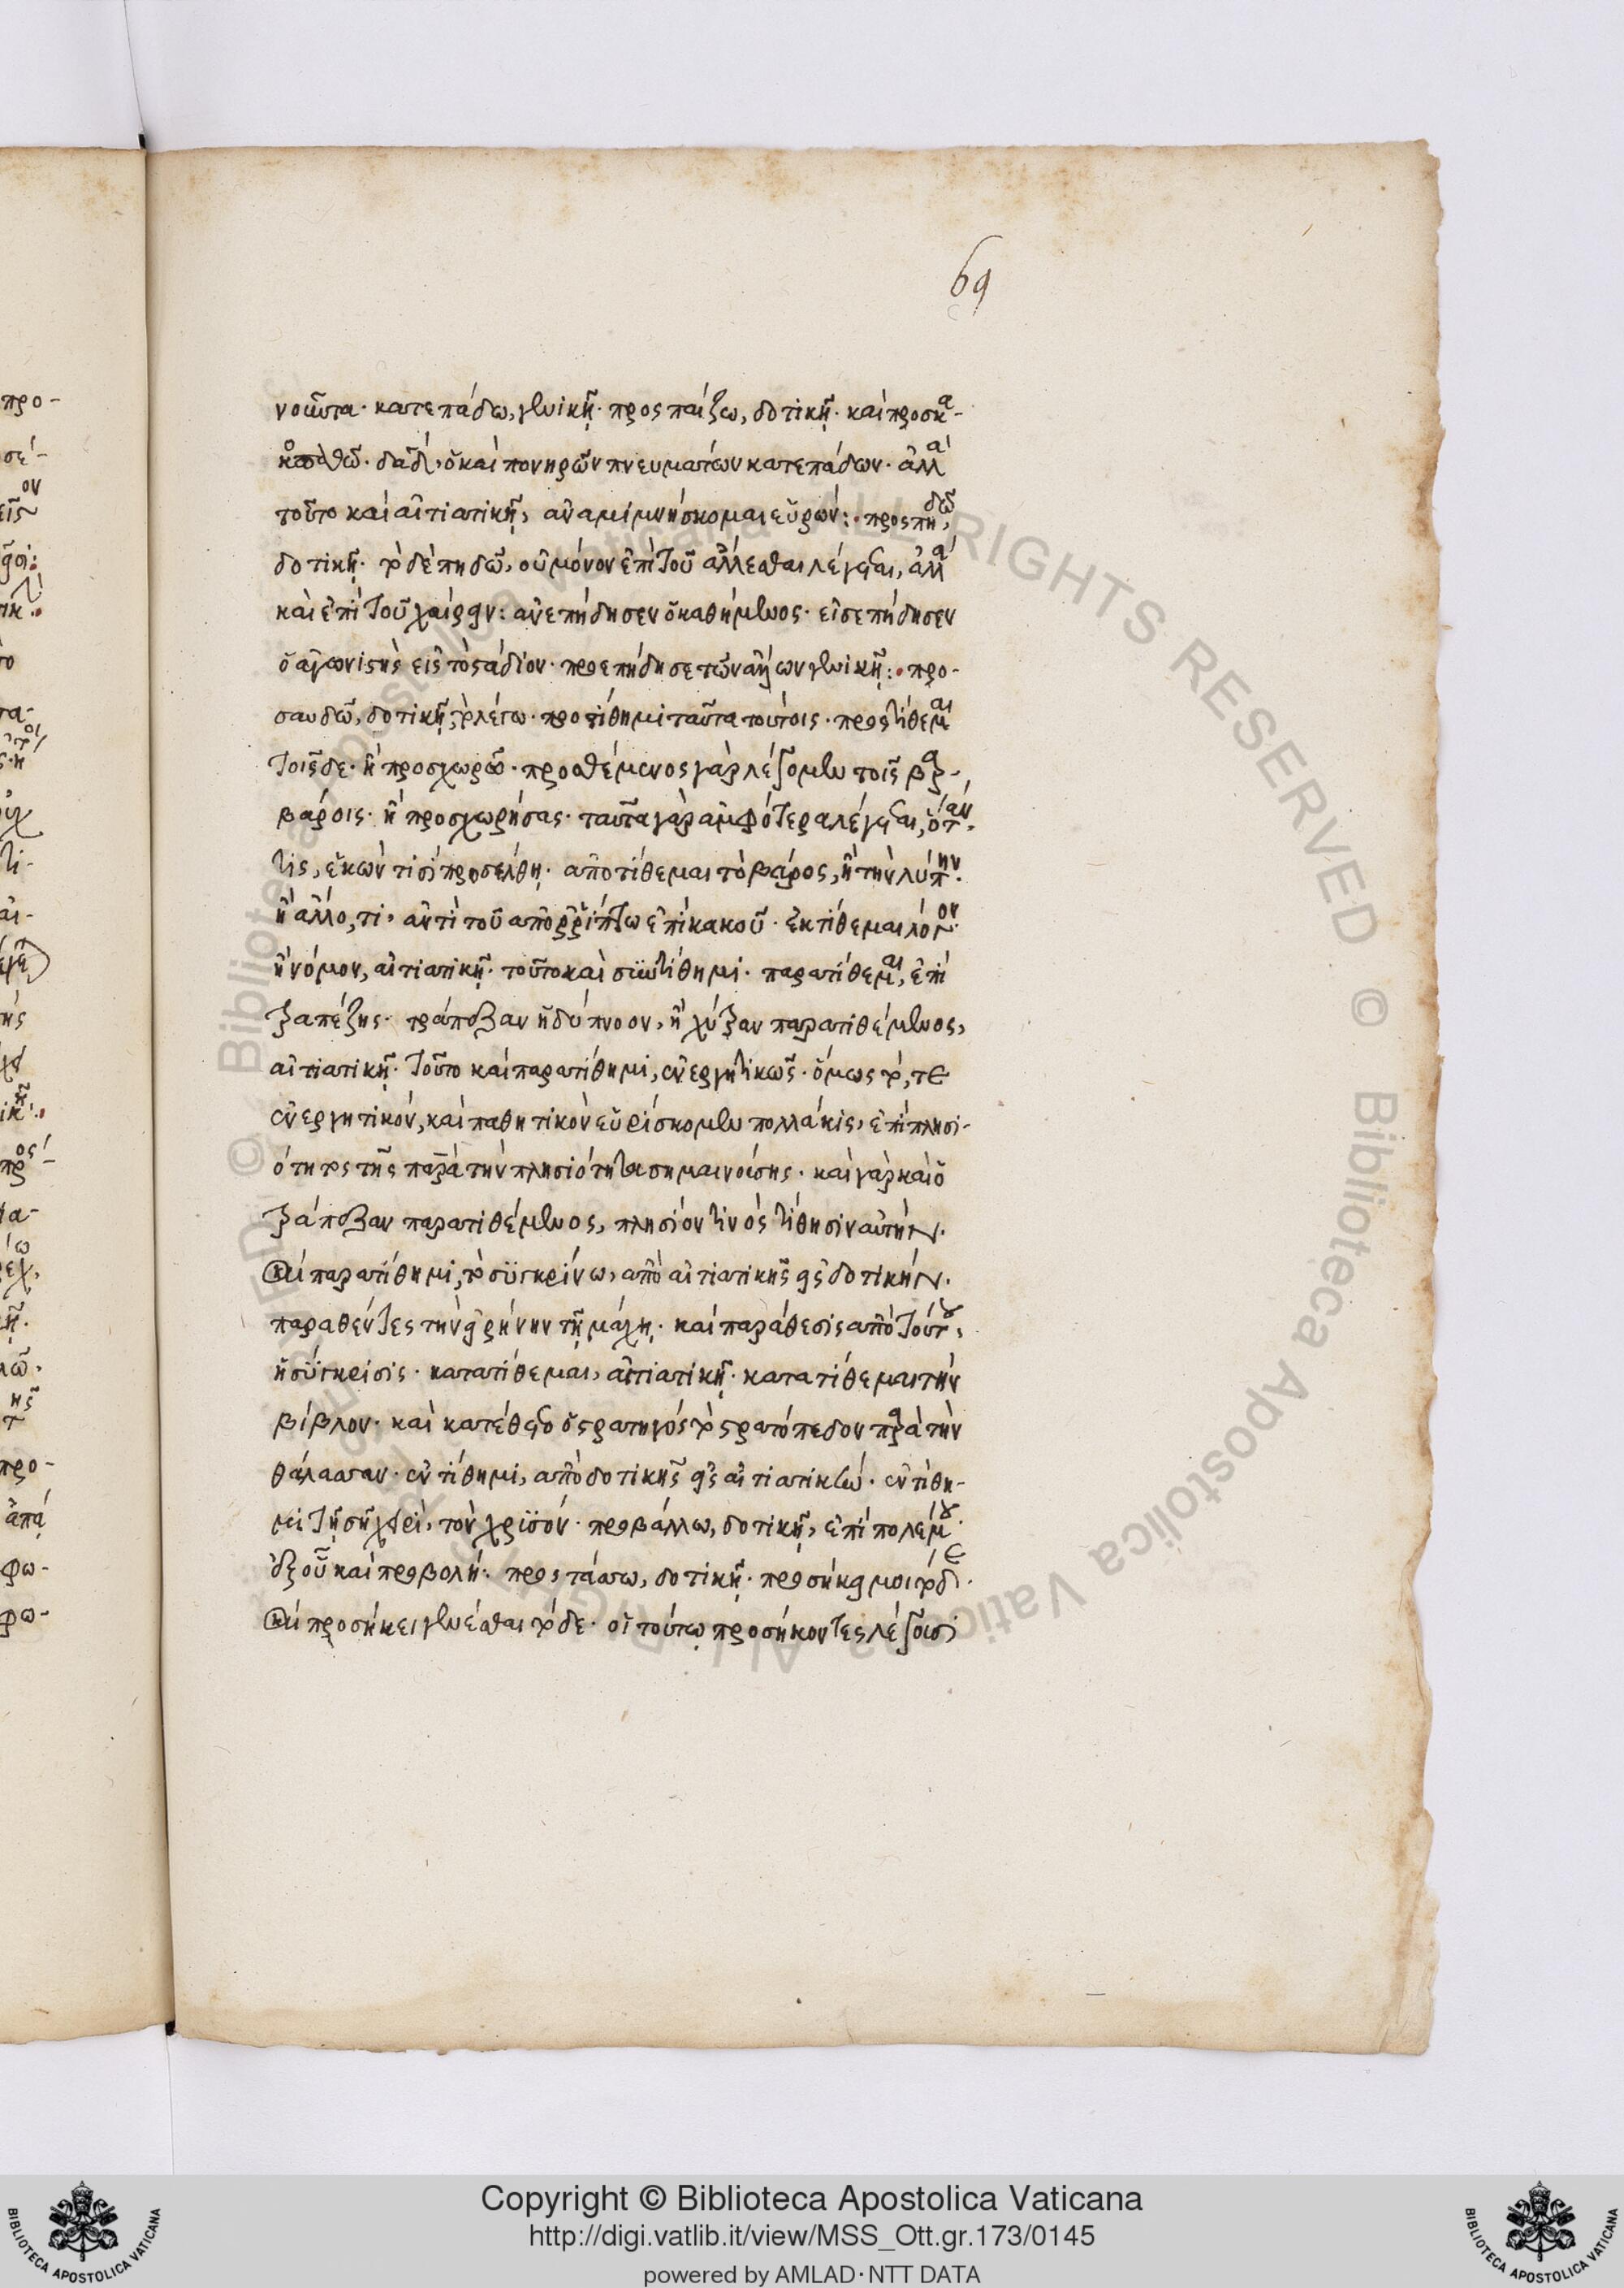 69
νοῦντα· κατεπάδω, γενικῇ· προσπαίζω, δοτικῇ· καὶ προσκα-
κοπαθῶ· δαδὶ, ὁ καὶ πονηρῶν πνευμάτων κατεπάδων· ἀλλὰ
τοῦτο καὶ αἰτιατικῇ, ἀναμιμνήσκομαι εὑρών: προσπηδῶ,
δοτικῇ· τὸ δὲ πηδῶ, οὐ μόνον ἐπὶ τοῦ ἅλλεσθαι λέγεται, ἀλλὰ
καὶ ἐπὶ τοῦ χαίρειν: ἀνεπήδησεν ὁ καθήμενος· εἰσεπήδησεν
ὁ ἀγωνιστὴς εἰς τὸ στάδιον· προεπήδησε τῶν ἄλλων γενικῇ: προ-
σαυδῶ, δοτικῇ, τὸ λέγω· προστίθημι ταῦτα τούτοις· προστίθεμαι
τοῖσδε· ἢ προσχωρῶ· προσθέμενος γὰρ λέγομεν τοῖς βαρ-
βάροις· ἢ προσχωρήσας· ταῦτα γὰρ ἀμφότερα λέγεται, ὅταν
τις, ἑκών τισι προσέλθῃ· ἀποτίθεμαι τὸ βάρος, ἢ τὴν λύπην·
ἢ ἄλλο, τι, ἀντὶ τοῦ ἀπορρίπτω ἐπὶ κακοῦ· ἐκτίθεμαι λόγον·
ἢ νόμον, αἰτιατικῇ· τοῦτο καὶ συντίθημι· παρατίθεμαι, ἐπὶ
τραπέζης· τράπεζαν ἡδύπνοον, ἢ χύτραν παρατιθέμενος,
αἰτιατικῇ· τοῦτο καὶ παρατίθημι, ἐνεργητικῶς· ὅμως τό, τε
ἐνεργητικόν, καὶ παθητικὸν εὑρίσκομεν πολλάκις, ἐπὶ πλησι-
ότητος τῆς παρὰ τὴν πλησιότητα σημαινούσης· καὶ γὰρ καὶ ὁ
τράπεζαν παρατιθέμενος, πλησίον τινὸς τίθησιν αὐτήν·
καὶ παρατίθημι, τὸ συγκρίνω, ἀπὸ αἰτιατικῆς εἰς δοτικήν·
παραθέντες τὴν εἰρήνην τῇ μάχῃ· καὶ παράθεσις ἀπὸ τούτου,
ἡ σύγκρισις· κατατίθεμαι, αἰτιατικῇ· κατατίθεμαι τὴν
βίβλον· καὶ κατέθετο ὁ στρατηγός τὸ στρατόπεδον παρὰ τὴν
θάλασσαν· ἐντίθημι, ἀπὸ δοτικῆς εἰς αἰτιατικήν· ἐντίθη-
μι τῇ σῇ χειρί, τὸν χρυσόν· προβάλλω, δοτικῇ, ἐπὶ πολέμου·
ἐξ οὗ καὶ προβολή· προστάσσω, δοτικῇ· προσήκει μοι τόδε·
καὶ προσήκει γενέσθαι τόδε· οἱ τούτῳ προσήκοντες λέγουσι